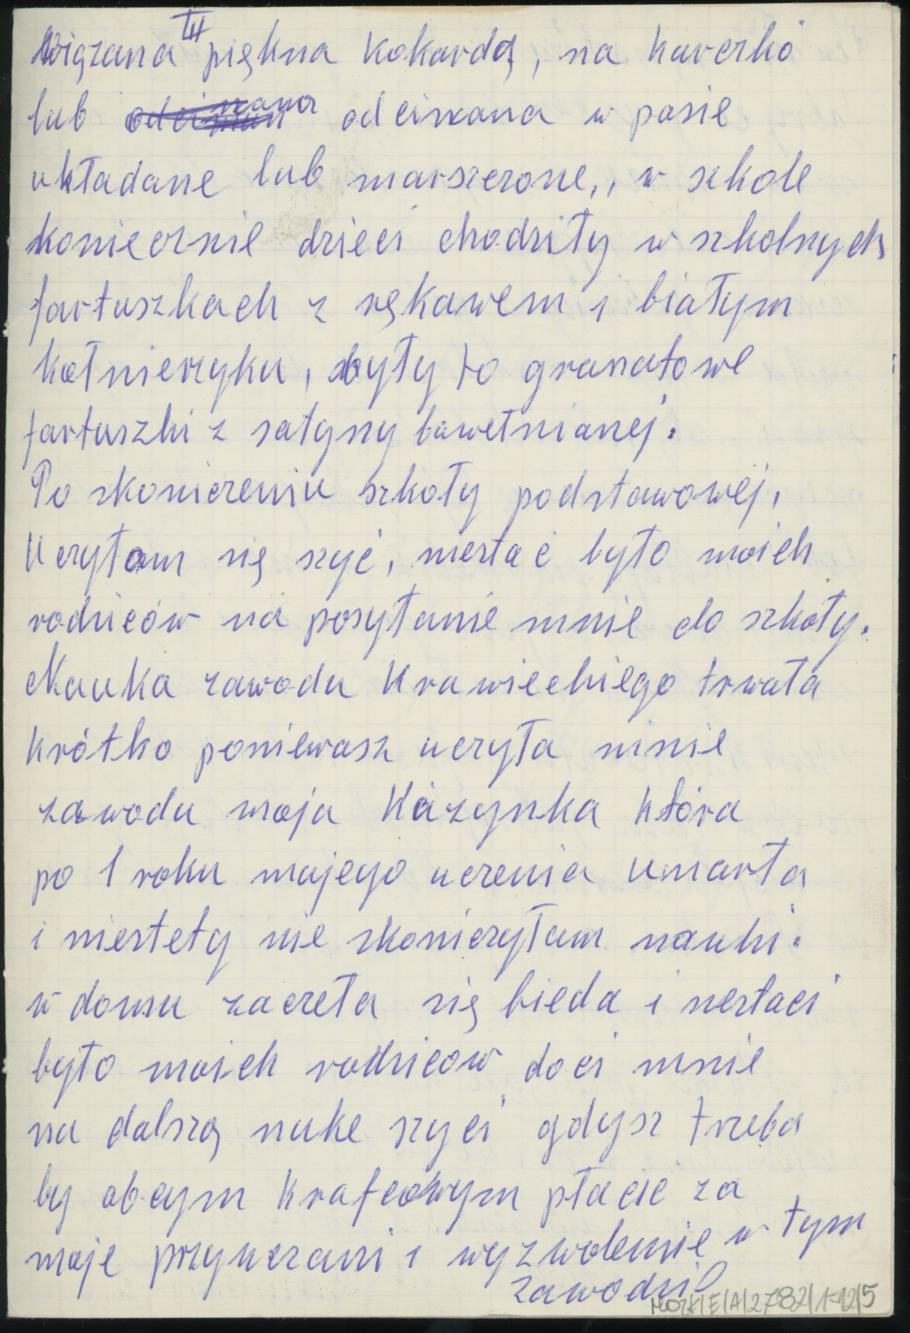 III
wiązana piękna kokardą, na karczko
lub odcinana w pasie
układane lub marszerone,, w szkole
koniecznie dzieci chodziły w szkolnych
fartuszkach z rękawem i białym
kołnierzyku, były to granatowe
fartuszki z satyny bawełnianej.
Po skonczeniu szkoły podstawowej,
Uczyłam się szyć, niestać było moich
rodziców na posyłanie mnie do szkoły.
Nauka zawodu Krawieckiego trwała
krótko poniewasz uczyła mnie
zawodu moja Kuzynka która
po 1 roku mojego uczenia umarła
i niestety nie skonczyłam nauki.
w domu zaczeła się bieda i nestaci
było moich rodzicow daci mnie
na dalszą nuke szyci gdysz trzeba
by obcym krafcowym płacic za
moje przyuczani i wyzwolenie w tym
zawodzie
MOZK/E/A/2782/1-12/5